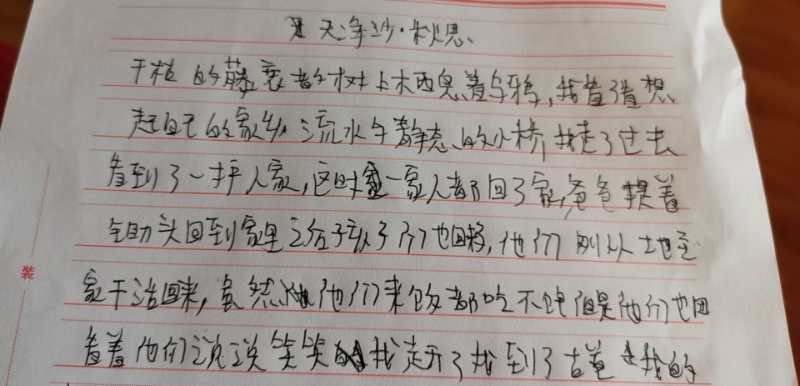 天净沙·秋思、
干枯的藤衰老的树上木西息着乌鸦,我看了着想
起自己的家乡流水与静态的小桥我走了过去
看到了一护人家,这时一家人都回了家,爸爸提着
锄头回到家里之后孩子们也回移,他们刚从地里
家干活回来,虽然他们来饭都吃不饱但是他们也围
着着他们说说笑笑我走开了我到了古道是我的
装